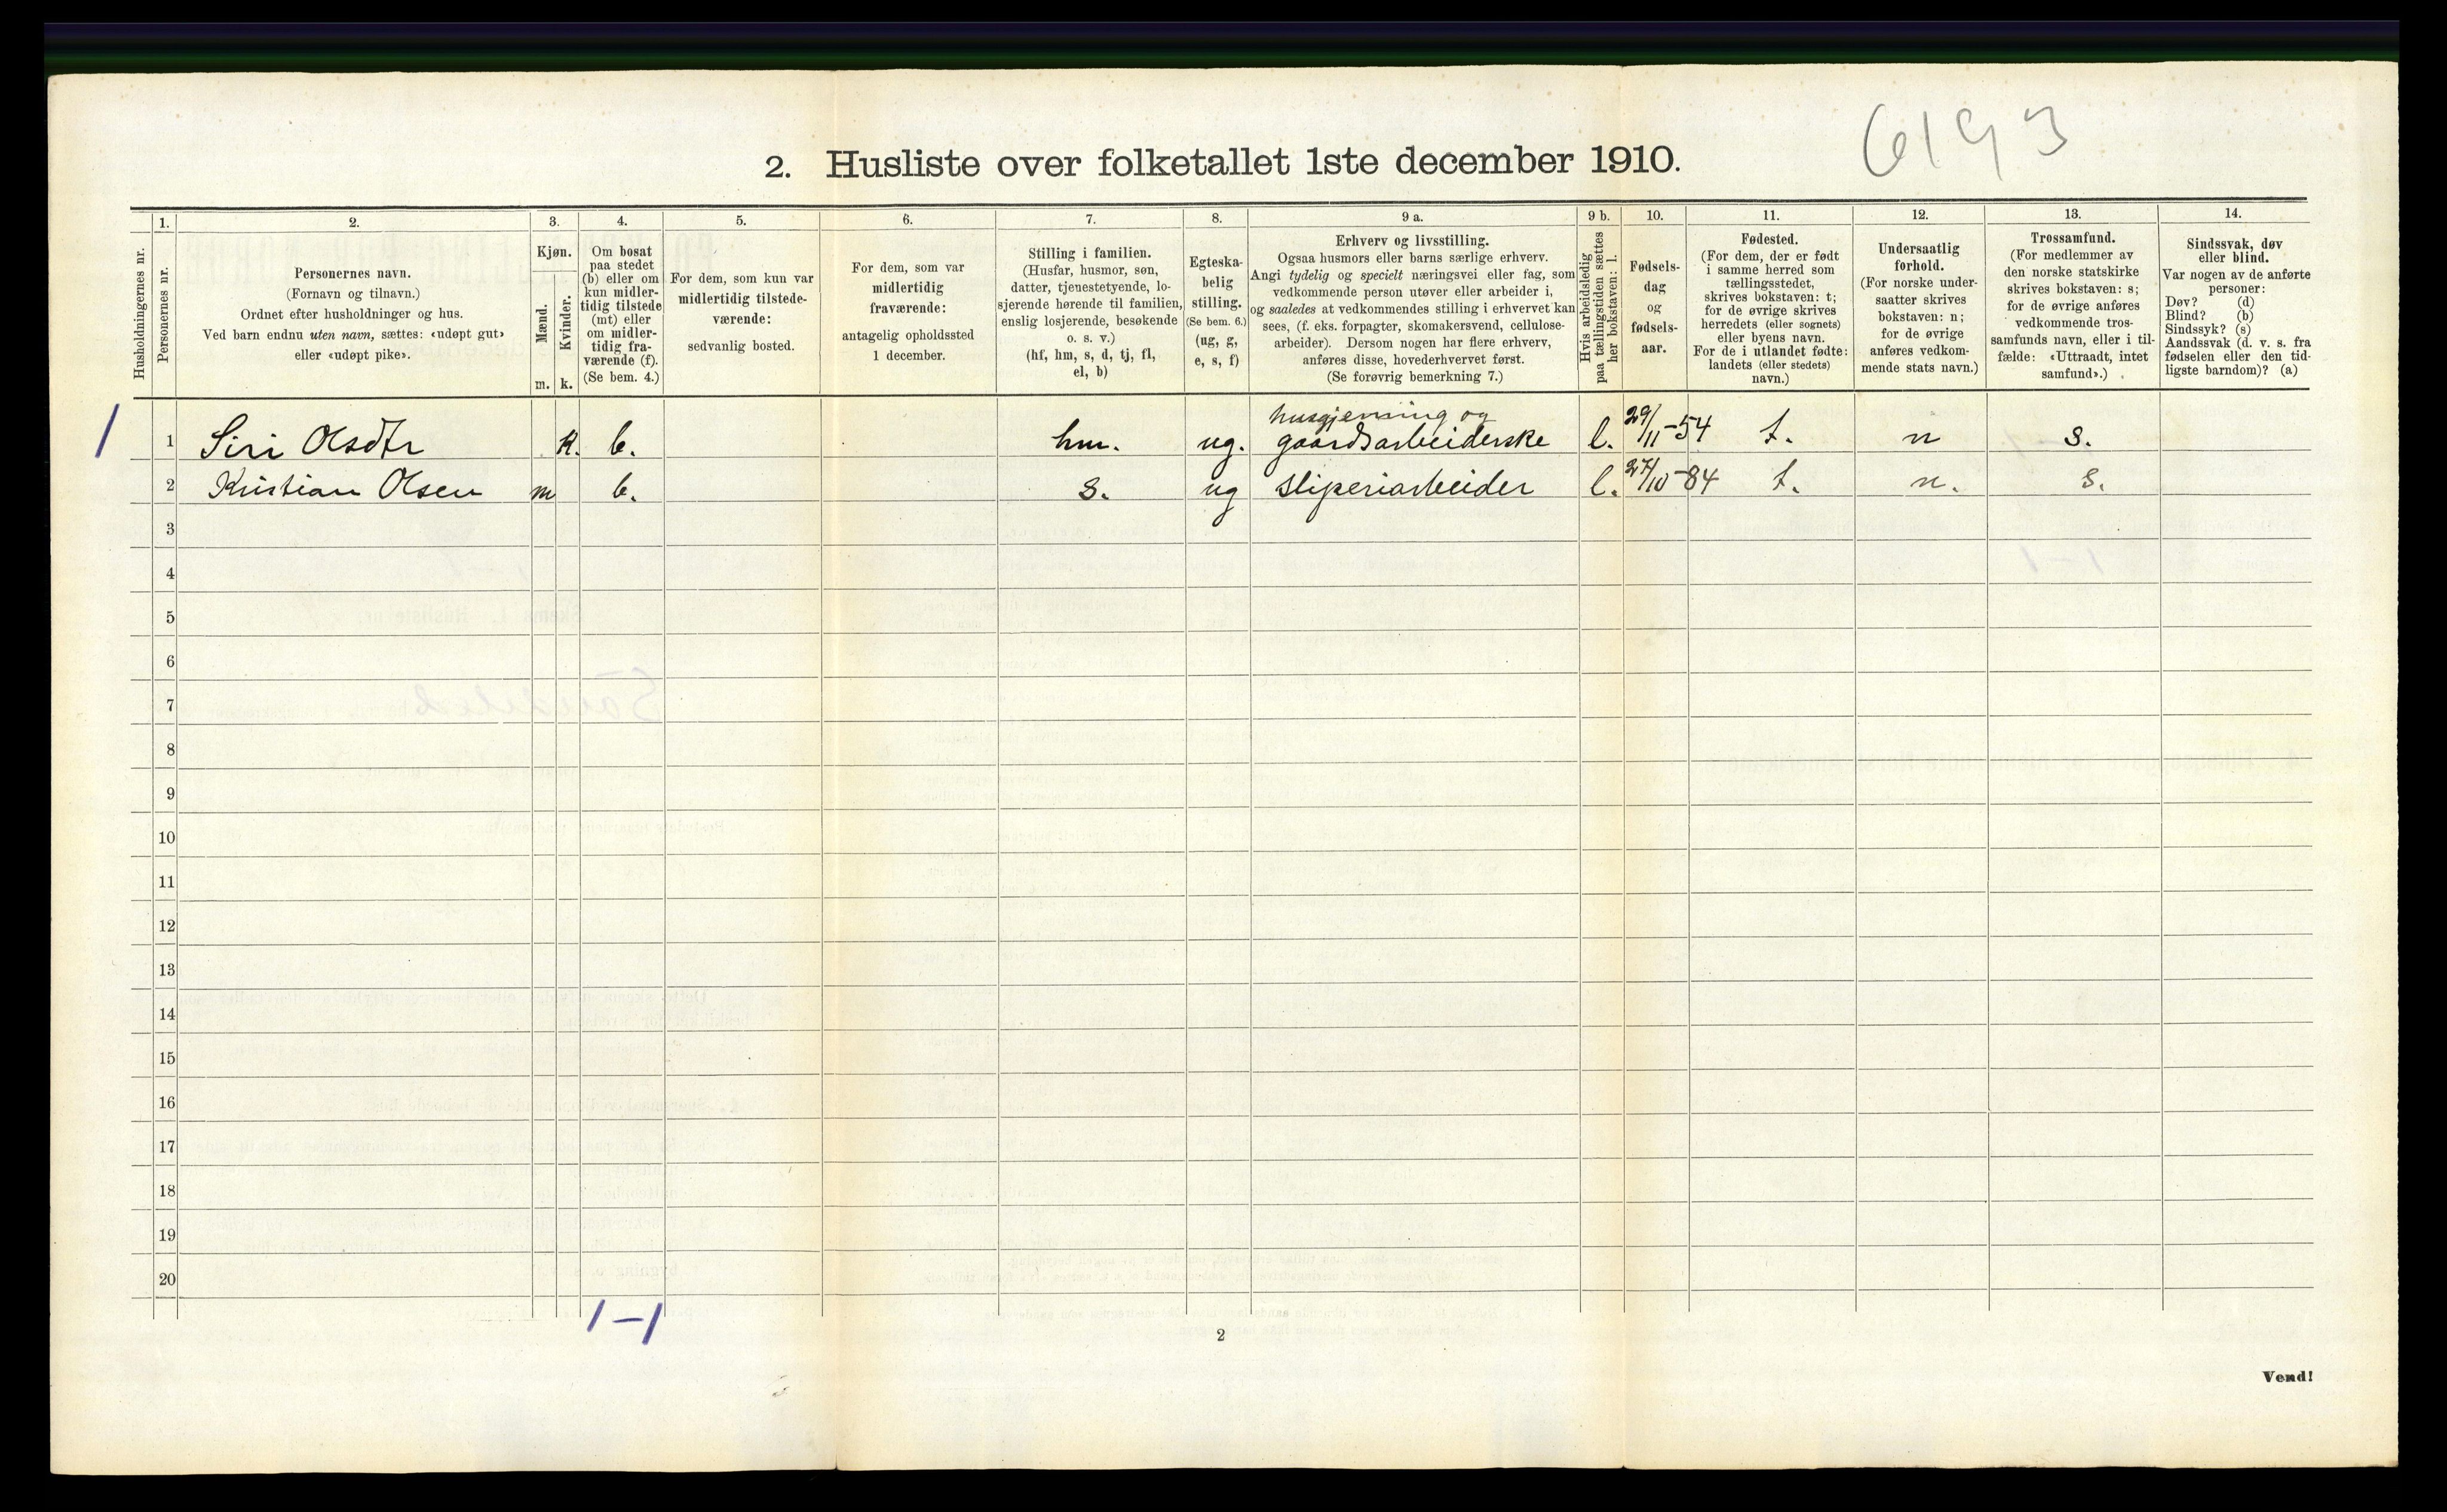 6193
2. Husliste over folketallet 1ste december 1910.
Husholdningernes nr.
1.
Personernes nr.
2.
Personernes navn.
(Fornavn og tilnavn.)
Ordnet efter husholdninger og hus.
Ved barn endnu uten navn, sættes: «udøpt gut»
eller «udøpt pike».
3.
Kjøn.
Mænd.
Kvinder.
m. k.
4.
Om bosat
paa stedet
(b) eller om
kun midler-
tidig tilstede
(mt) eller
om midler-
tidig fra-
værende (f).
(Se bem. 4.)
5.
For dem, som kun var
midlertidig tilstede-
værende:
sedvanlig bosted.
6.
For dem, som var
midlertidig
fraværende:
antagelig opholdssted
1 december.
7.
Stilling i familien.
(Husfar, husmor, søn,
datter, tjenestetyende, lo-
sjerende hørende til familien,
enslig losjerende, besøkende
o. s. v.)
(hf, hm, s, d, tj, fl,
el, b)
8.
Egteska-
belig
stilling.
(Se bem. 6.)
(ug, g,
e, s, f)
9 a.
Erhverv og livsstilling.
Ogsaa husmors eller barns særlige erhverv.
Angi tydelig og specielt næringsvei eller fag, som
vedkommende person utøver eller arbeider i,
og saaledes at vedkommendes stilling i erhvervet kan
sees, (f. eks. forpagter, skomakersvend, cellulose-
arbeider). Dersom nogen har flere erhverv,
anføres disse, hovederhvervet først.
(Se forøvrig bemerkning 7.)
9 b.
Hvis arbeidsledig
paa tællingstiden sættes
her bokstaven: l.
10.
Fødsels-
dag
og
fødsels-
aar.
11.
Fødested.
(For dem, der er født
i samme herred som
tællingsstedet,
skrives bokstaven: t;
for de øvrige skrives
herredets (eller sognets)
eller byens navn.
For de i utlandet fødte:
landets (eller stedets)
navn.)
12.
Undersaatlig
forhold.
(For norske under-
saatter skrives
bokstaven: n;
for de øvrige
anføres vedkom-
mende stats navn.)
13.
Trossamfund.
(For medlemmer av
den norske statskirke
skrives bokstaven: s;
for de øvrige anføres
vedkommende tros-
samfunds navn, eller i til-
fælde: «Uttraadt, intet
samfund».)
14.
Sindssvak, døv
eller blind.
Var nogen av de anførte
personer:
Døv? (d)
Blind? (b)
Sindssyk? (s)
Aandssvak (d. v. s. fra
fødselen eller den tid-
ligste barndom)? (a)
husgjerning og
1 1 Siri Olsdtr k. b. hm. ug. gaardsarbeiderske l. 29/11-54 t. n s.
2 Kristian Olsen m b. s. ug sliperiarbeider l. 27/10-84 t. n. s.
3
4
5
6
7
8
9
10
11
12
13
14
15
16
17
18
19
20
1-1
2
Vend!